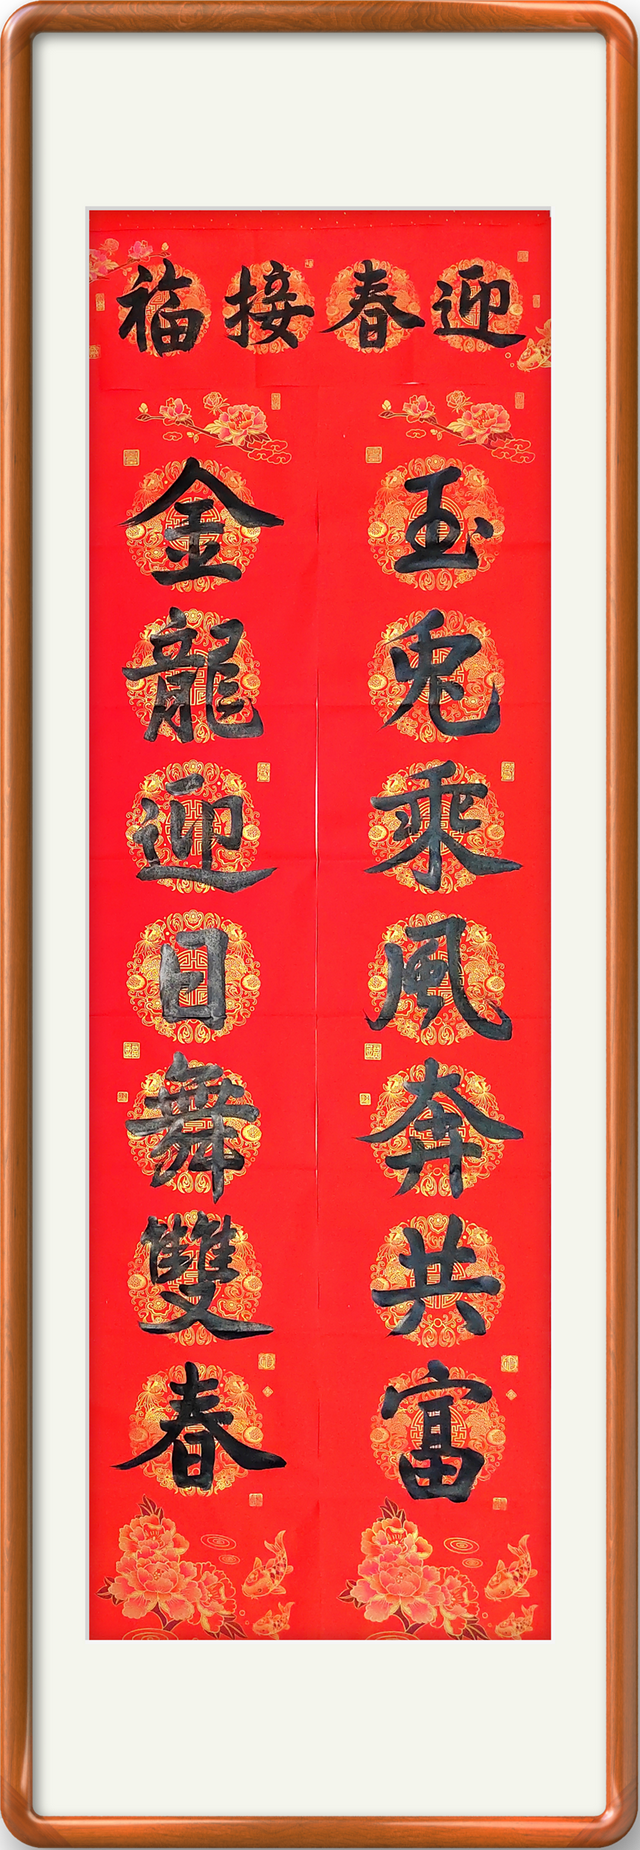 迎春接福
玉兔乘風奔共富
金龍迎日舞雙春